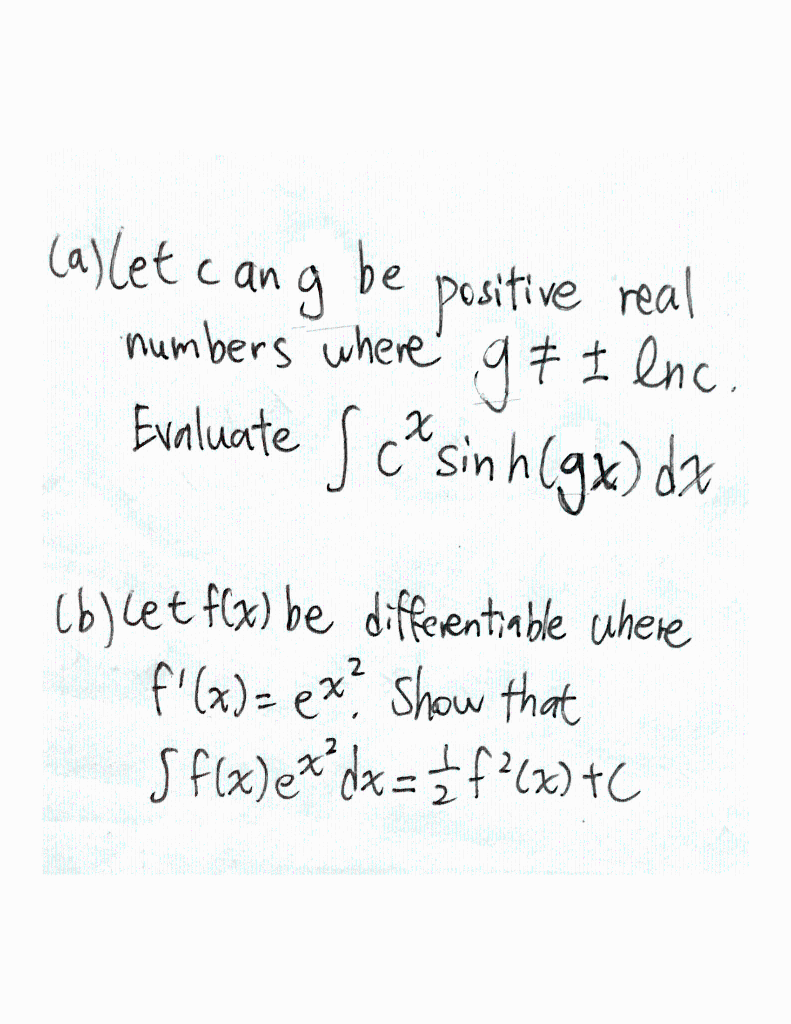 (a) Let c an g be positive real
numbers where g ≠ ± ln c.
Evaluate ∫ c^x sinh(gx) dx
(b) Let f(x) be differentiable where
f'(x) = e^x². Show that
∫ f(x)e^x² dx = 1/2 f²(x) + C